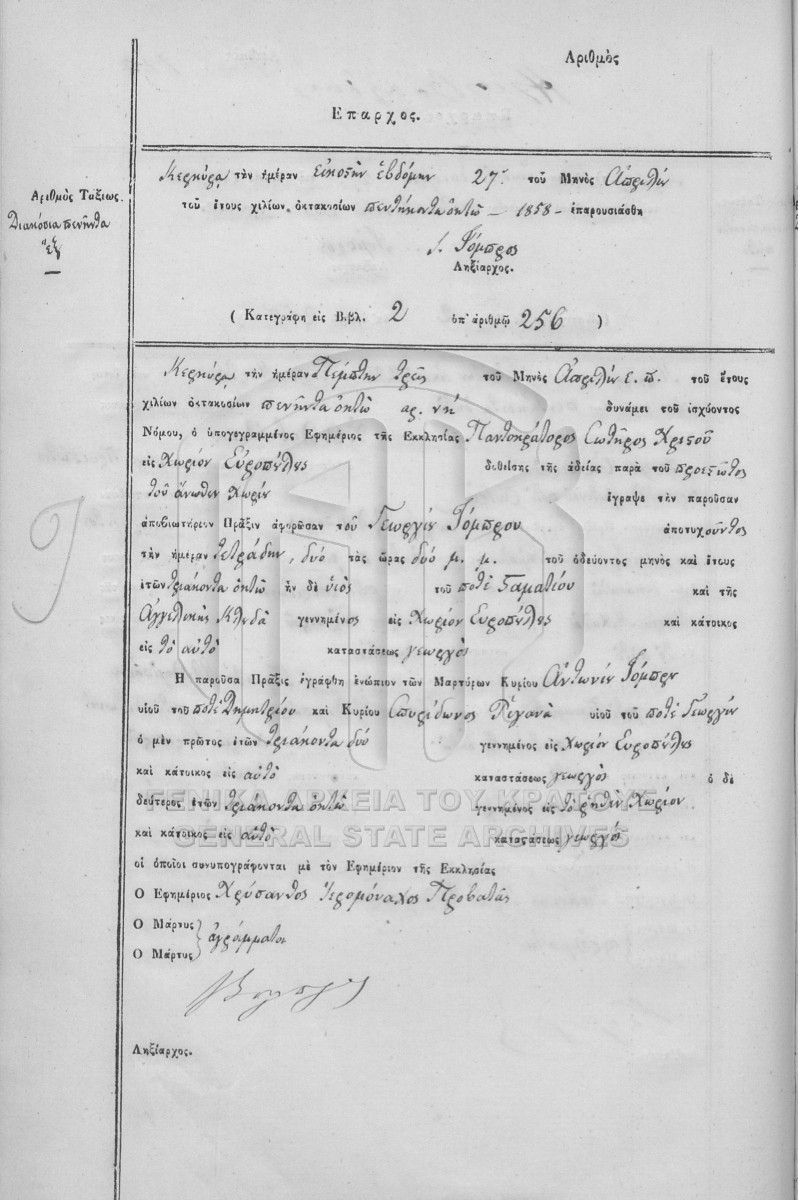 Ἀριθμὸς
Ἔπαρχος.
Ἀριθμὸς Τάξεως.
Διακόσια πενῆντα
ἕξ
Κέρκυρα τὴν ἡμέραν εἰκοστὴν ἑβδόμην 27 τοῦ Μηνὸς Ἀπριλίου
τοῦ ἔτους χιλίων, ὀκτακοσίων πεντήκοντα ὀκτὼ — 1858 - ἐπαρουσιάσθη
Γόμπρος
Ληξίαρχος.
( Κατεγράφη εἰς Βιβλ. 2 ὑπ' ἀριθμῷ 256 )
Κέρκυρα τὴν ἡμέραν Πέμπτην τρεῖς τοῦ Μηνὸς Ἀπριλίου ε. π. τοῦ ἔτους
χιλίων ὀκτακοσίων πενῆντα ὀκτὼ αρ. νή δυνάμει τοῦ ἰσχύοντος
Νόμου, ὁ ὑπογεγραμμένος Ἐφημέριος τῆς Ἐκκλησίας Παντοκράτορος Σωτῆρος Χριστοῦ
εἰς Χωρίον Εὐροπούλους δοθείσης τῆς ἀδείας παρὰ τοῦ προεστῶτος
τοῦ ἄνωθεν Χωρίου ἔγραψε τὴν παροῦσαν
ἀποβιωτήριον Πρᾶξιν ἀφορῶσαν τοῦ Γεωργίου Γόμπρου ἀποτυχοῦντος
τὴν ἡμέραν τετράδην, δύο τὰς ὥρας δύο μ. μ. τοῦ ὁδεύοντος μηνὸς καὶ ἔτους
ἐτῶν τριάκοντα ὀκτὼ ἦν δὲ υἱὸς τοῦ ποτὲ Σταματίου καὶ τῆς
Ἀγγελικῆς γεννημένος εἰς Χωρίον Εὐροπούλους καὶ κάτοικος
εἰς τὸ αὐτὸ καταστάσεως γεωργὸς
Ἡ παροῦσα Πρᾶξις ἐγράφθη ἐνώπιον τῶν Μαρτύρων Κυρίου Ἀντωνίου Γόμπρου
υἱοῦ τοῦ ποτὲ Δημητρίου καὶ Κυρίου Σπυρίδωνος Ρίγανᾶ υἱοῦ τοῦ ποτὲ Γεωργίου
ὁ μὲν πρῶτος ἐτῶν τριάκοντα δύο γεννημένος εἰς Χωρίον Εὐροπούλους
καὶ κάτοικος εἰς αὐτὸ καταστάσεως γεωργὸς ὁ δὲ
δεύτερος ἐτῶν τριάκοντα ὀκτὼ γεννημένος εἰς τὸ ῥηθὲν Χωρίον
καὶ κάτοικος εἰς αὐτὸ καταστάσεως γεωργός
οἱ ὁποῖοι συνυπογράφονται μὲ τὸν Ἐφημέριον τῆς Ἐκκλησίας
Ὁ Ἐφημέριος Χρύσανθος Ἱερομόναχος Προβατᾶς
Ὁ Μάρτυς
ἀγράμματοι
Ὁ Μάρτυς
Ληξίαρχος.
ΓΕΝΙΚΑ ΑΡΧΕΙΑ ΤΟΥ ΚΡΑΤΟΥΣ
GENERAL STATE ARCHIVES